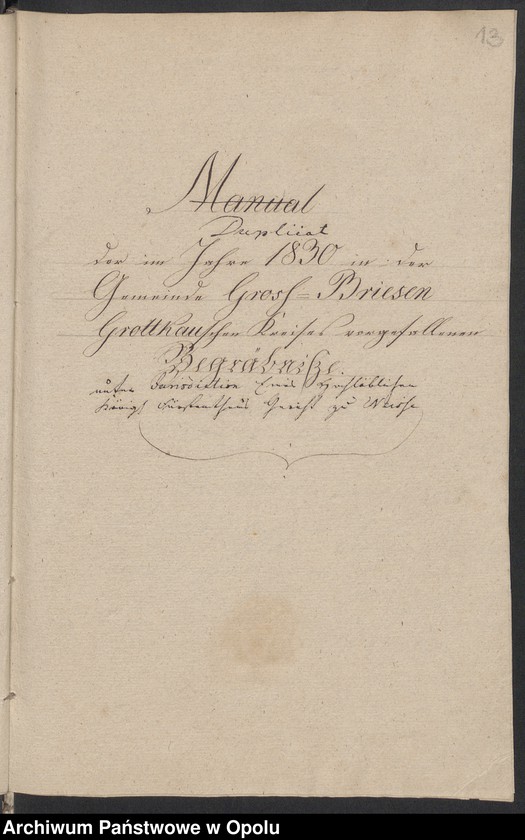 13
Manual
Duplicat
der im Jahre 1830 in der
Gemeinde Gross=Briesen
Grottkauschen Kreises vorgefallenen
Begräbniße.
unter Jurisdiktion Eines Hochlöblichen
Königl Fürstenthums Gericht zu Neisse
Archiwum Państwowe w Opolu